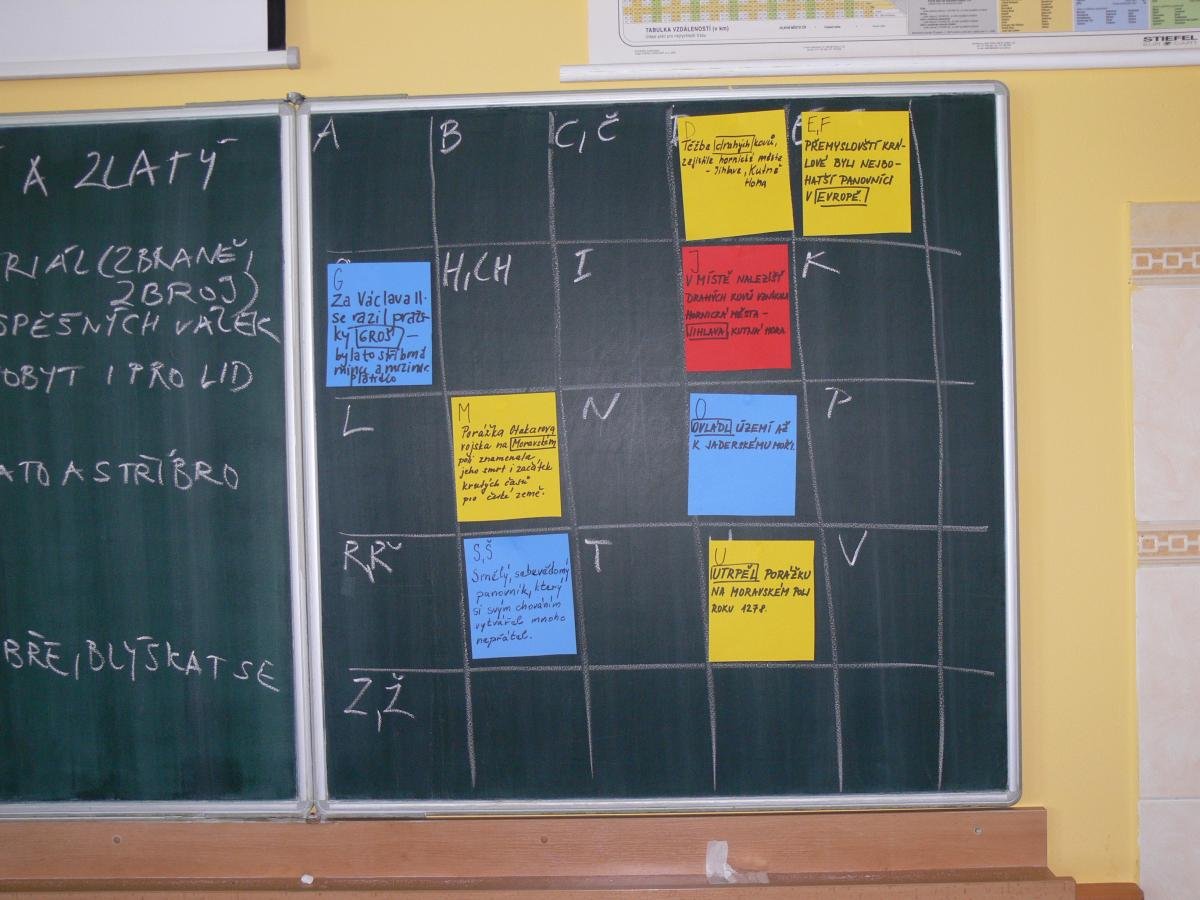 TABULKA VZDÁLENOSTÍ (v km)
STIEFEL
A ZLATÝ
RIÁL (ZBRANĚ,
ZBROJ)
SPĚŠNÝCH VÁLEK
OBYT I PRO LID
ATO A STŘÍBRO
BŘE, BLÝSKAT SE
A
B
C, Č
D
Těžba drahých kovů,
zajistila hornická města
- Jihlava, Kutná
Hora
E, F
PŘEMYSLOVŠTÍ KRÁ-
LOVÉ BYLI NEJBO-
HATŠÍ PANOVNÍCI
V EVROPĚ.
G
Za Václava II.
se razil praž-
ský GROŠ –
byla to stříbrná
mince a
platidlo
H, CH
I
J
V MÍSTĚ NALEZIŠŤ
DRAHÝCH KOVŮ VZNIKLA
HORNICKÁ MĚSTA -
JIHLAVA, KUTNÁ HORA
K
L
M
Porážka Otakarova
vojska na Moravském
poli znamenala
jeho smrt i začátek
krutých časů
pro české země.
N
O
OVLÁDL ÚZEMÍ AŽ
K JADERSKÉMU MOŘI.
P
R, Ř
S, Š
Smělý, sebevědomý
panovník, který
si svým chováním
vytvářel mnoho
nepřátel.
T
U
UTRPĚL PORÁŽKU
NA MORAVSKÉM POLI
ROKU 1278.
V
Z, Ž